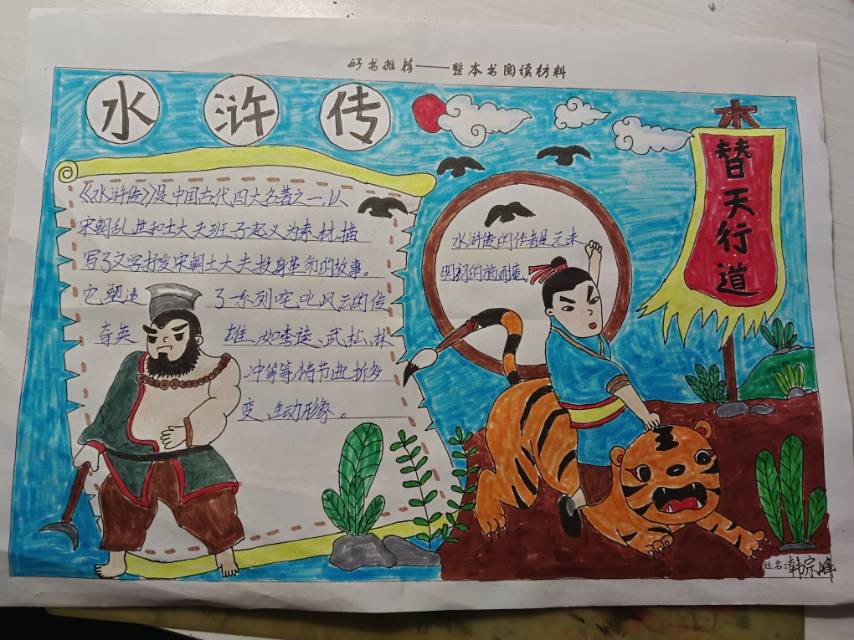 好书推荐——整本书阅读材料
水浒传
《水浒传》是中国古代四大名著之一,以
宋朝乱世和士大夫班子起义为素材,描
写了文字抒发宋朝士大夫投身革命的故事。
它塑造了一系列咤叱风云的传
奇英雄,如李逵、武松、林
冲等等,情节曲折多
变,生动形象。
水浒传的作者是元末
明初的施耐庵。
替天行道
姓名:韩宗峰